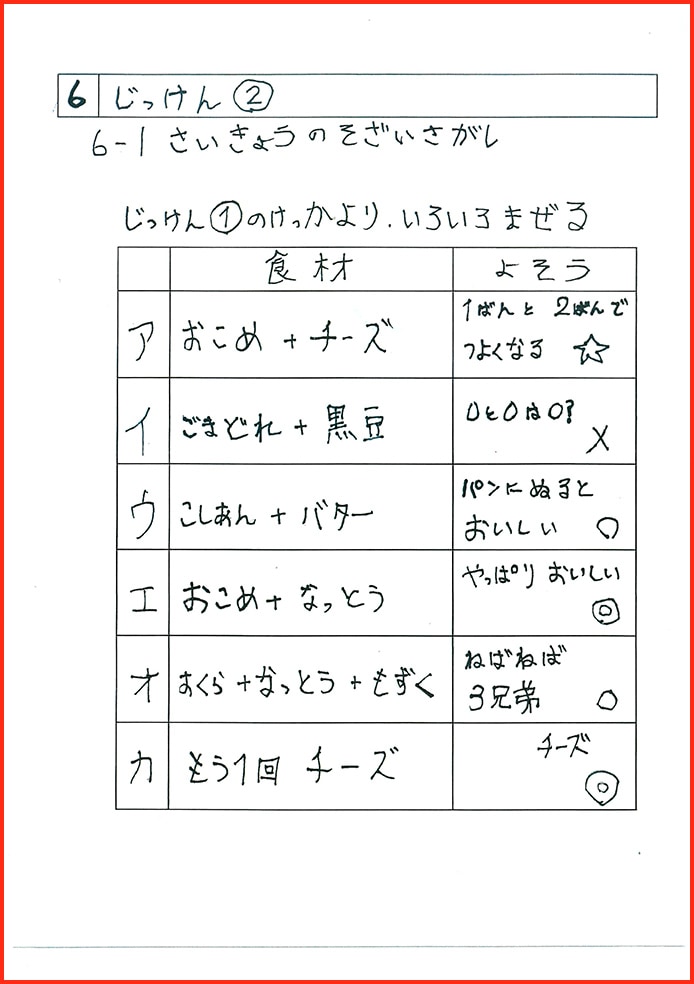 6 じっけん②
6-1 さいきょうのそざいさがし
じっけん①のけっかより.いろいろまぜる
食材 よそう
ア おこめ + チーズ 1ばんと 2ばんで
つよくなる ☆
イ ごまどれ + 黒豆 0と0は0?
×
ウ こしあん + バター パンにぬると
おいしい ○
エ おこめ + なっとう やっぱり おいしい
◎
オ おくら + なっとう + もずく ねばねば
3兄弟 ○
カ もう1回 チーズ チーズ
◎